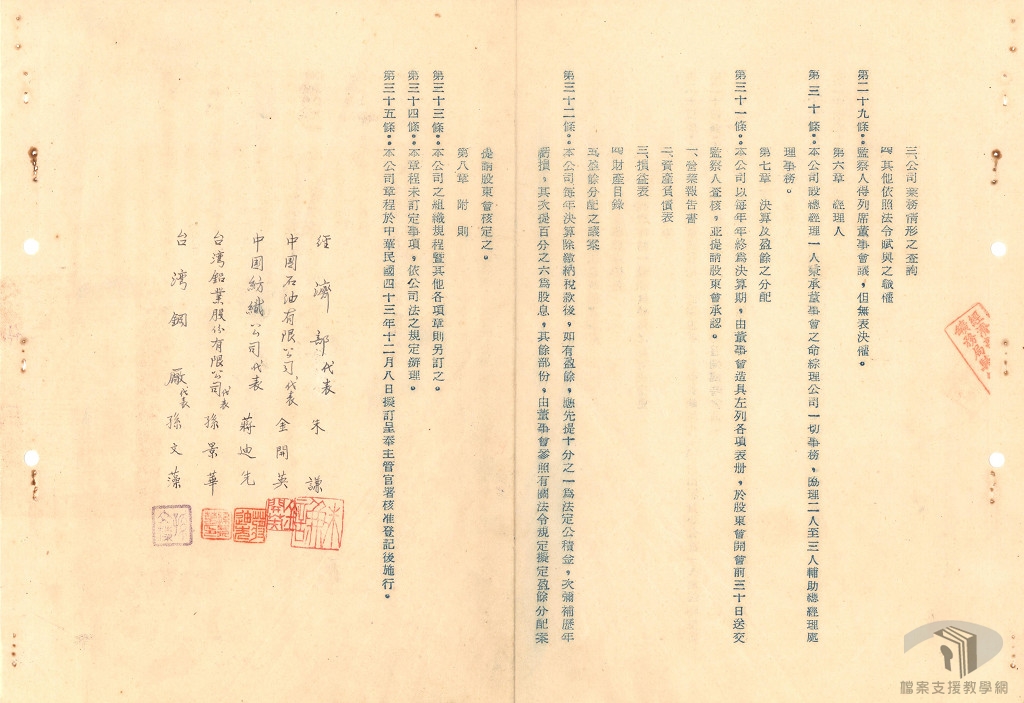 三、公司業務情形之查詢
四、其他依照法令賦與之職權
第二十九條：監察人得列席董事會議，但無表決權。
第六章　經理人
第三十條：本公司設總經理一人秉承董事會之命綜理公司一切事務，協理二人至三人輔助總經理處
理事務。
第七章　決算及盈餘之分配
第三十一條：本公司以每年年終為決算期，由董事會造具左列各項表册，於股東會開會前三十日送交
監察人查核，並提請股東會承認。
一、營業報告書
二、資產負債表
三、損益表
四、財產目錄
五、盈餘分配之議案
第三十二條：本公司每年決算除繳納稅款後，如有盈餘，應先提十分之一為法定公積金，次彌補歷年
虧損，其次提百分之六為股息，其餘部份，由董事會參照有關法令規定擬定盈餘分配案
提請股東會核定之。
第八章　附則
第三十三條：本公司之組織規程暨其他各項章則另訂之。
第三十四條：本章程未訂定事項，依公司法之規定辦理。
第三十五條：本公司章程於中華民國四十三年十二月八日擬訂呈奉主管官署核准登記後施行。
經濟部代表　朱謙
中國石油有限公司代表　金開英
中國紡織公司代表　蔣迪先
台灣鋁業股份有限公司代表　孫景華
台灣鋼廠代表　孫文藻
檔案支援教學網